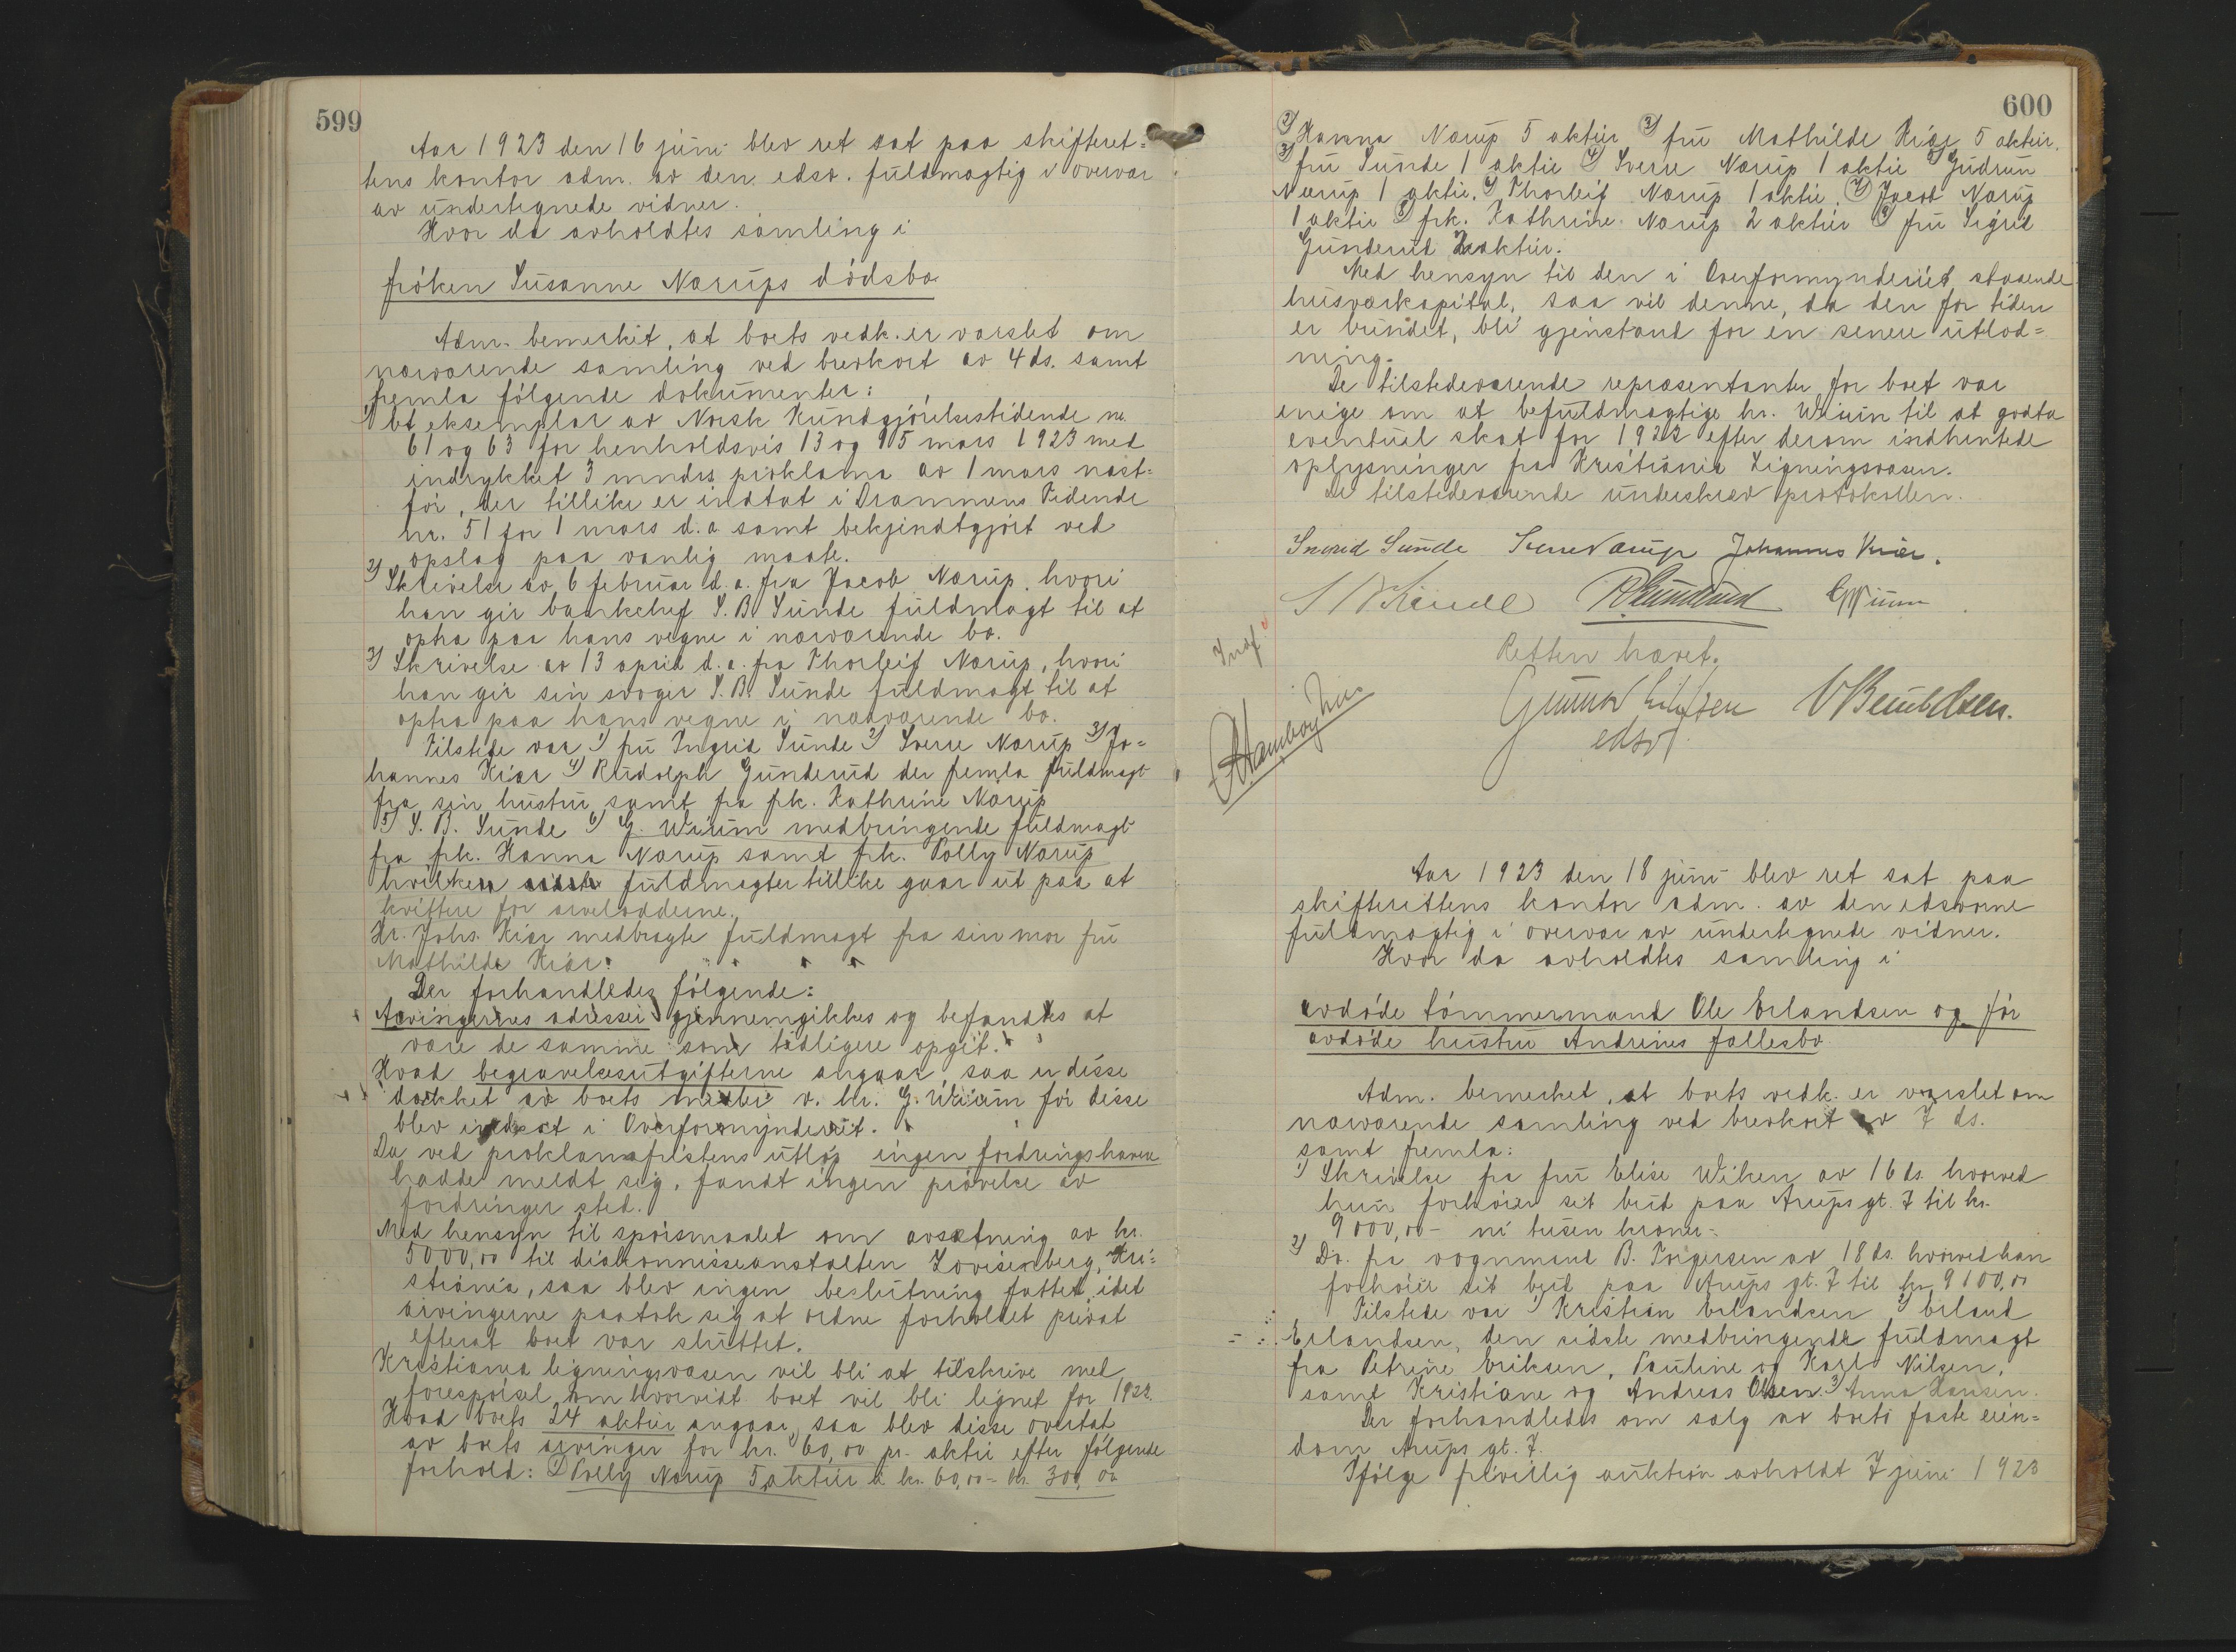 599
Aar 1923 den 16 juni blev ret sat paa skifteret=
tens kontor adm. av den edsv. fuldmægtig i overvær
av undertegnede vidner.
Hvor da avholdtes samling i
frøken Susanne Nærups dødsbo
Adm. bemerket, at boets vedk. er varslet om
nærværende samling ved brevkort av 4 ds. samt
fremla følgende dokumenter:
1) Et eksemplar av Norsk Kundgjørelsestidende nr.
61 og 63 for henholdsvis 13 og 15 mars 1923 med
indrykket 3 mndrs proklama av 1 mars næst=
før, der tillike er indtat i Drammens Tidende
nr. 51 for 1 mars d.a. samt bekjendtgjort ved
opslag paa vanlig maate.
2) Skrivelse av 6 februar d.a. fra Jacob Nærup, hvori
han gir bankchef S. B. Sunde fuldmagt til at
optra paa hans vegne i nærværende bo.
3) Skrivelse av 13 april d.a. fra Thorleif Nærup, hvori
han gir sin svoger S. B. Sunde fuldmagt til at
optra paa hans vegne i nærværende bo.
Tilstede var 1) fru Ingrid Sunde 2) Sverre Nærup 3) Jo=
hannes Kiær 4) Rudolph Gunderud der fremla fuldmagt
fra sin hustru samt fra frk. Kathrine Nærup
5) S. B. Sunde 6) G. Wiium medbringende fuldmagt
fra frk. Hanna Nærup samt frk. Polly Nærup
hvilken fuldmagter tillike gaar ut paa at
kvittere for arvelodderne.
Hr. Johs. Kiær medbragte fuldmagt fra sin mor fru
Mathilde Kiær.
Der forhandledes følgende:
Arvingernes adresser gjennemgikkes og befandtes at
være de samme som tidligere opgit.
Hvad begravelsesutgifterne angaar, saa er disse
dækket av boets midler v. hr. G. Wiium før disse
blev indsat i Overformynderiet.
Da ved proklamafristens utløp ingen fordringshavere
hadde meldt sig, fandt ingen prøvelse av
fordringer sted.
Med hensyn til spørsmaalet om avsætning av kr.
5000,00 til diakonisseanstalten Lovisenberg, Kri=
stiania, saa blev ingen beslutning fattet, idet
arvingerne paatok sig at ordne forholdet privat
efterat boet var sluttet.
Kristiania ligningsvæsen vil bli at tilskrive med
forespørsel om hvorvidt boet vil bli lignet for 1922.
Hvad boets 24 aktier angaar, saa blev disse overtat
av boets arvinger for kr. 60,00 pr. aktie efter følgende
forhold: 1) Polly Nærup 5 aktier à kr. 60,00 - kr. 300,00
600
2) Hanna Nærup 5 aktier 3) fru Mathilde Kiær 5 aktier,
3) fru Sunde 1 aktie 4) Sverre Nærup 1 aktie 5) Gudrun
Nærup 1 aktie. 6) Thorleif Nærup 1 aktie. 7) Jacob Nærup
1 aktie 8) frk. Kathrine Nærup 2 aktier 9) fru Sigrid
Gunderud 2 aktier.
Med hensyn til den i Overformynderiet staaende
husværkapital, saa vil denne, da den for tiden
er bundet, bli gjenstand for en senere utlod=
ning.
De tilstedeværende representanter for boet var
enige om at befuldmægtige hr. Wiium til at godta
eventuel skat for 1922 efter derom indhentede
oplysninger fra Kristiania Ligningsvæsen.
De tilstedeværende underskrev protokollen.
Ingrid Sunde Sverre Nærup Johannes Kiær.
S B Sunde R Gunderud G Wiium
Retten hævet.
edsv
Aar 1923 den 18 juni blev ret sat paa
skifterettens kontor adm. av den edsvorne
fuldmægtig i overvær av undertegnede vidner.
Hvor da avholdtes samling i
avdøde tømmermand Ole Erlandsen og før
avdøde hustru Andrines fællesbo
Adm. bemerket, at boets vedk. er varslet om
nærværende samling ved brevkort av 7 ds.
samt fremla:
1) Skrivelse fra fru Elise Wiken av 16 ds. hvorved
hun forhøier sit bud paa Arups gt. 7 til kr.
9000,00 - ni tusen kroner -
2) Do. fra vognmand B. Torgersen av 18 ds. hvorved han
forhøier sit bud paa Arups gt. 7 til kr. 9100,00
Tilstede var 1) Kristian Erlandsen 2) Erland
Erlandsen, den sidste medbringende fuldmagt
fra Petrine Eriksen, Pauline og Karl Nilsen,
samt Kristiane og Andreas Olsen. 3) Anna Hansen.
Der forhandledes om salg av boets faste eien=
dom Arups gt. 7.
Ifølge frivillig auktion avholdt 7 juni 1923